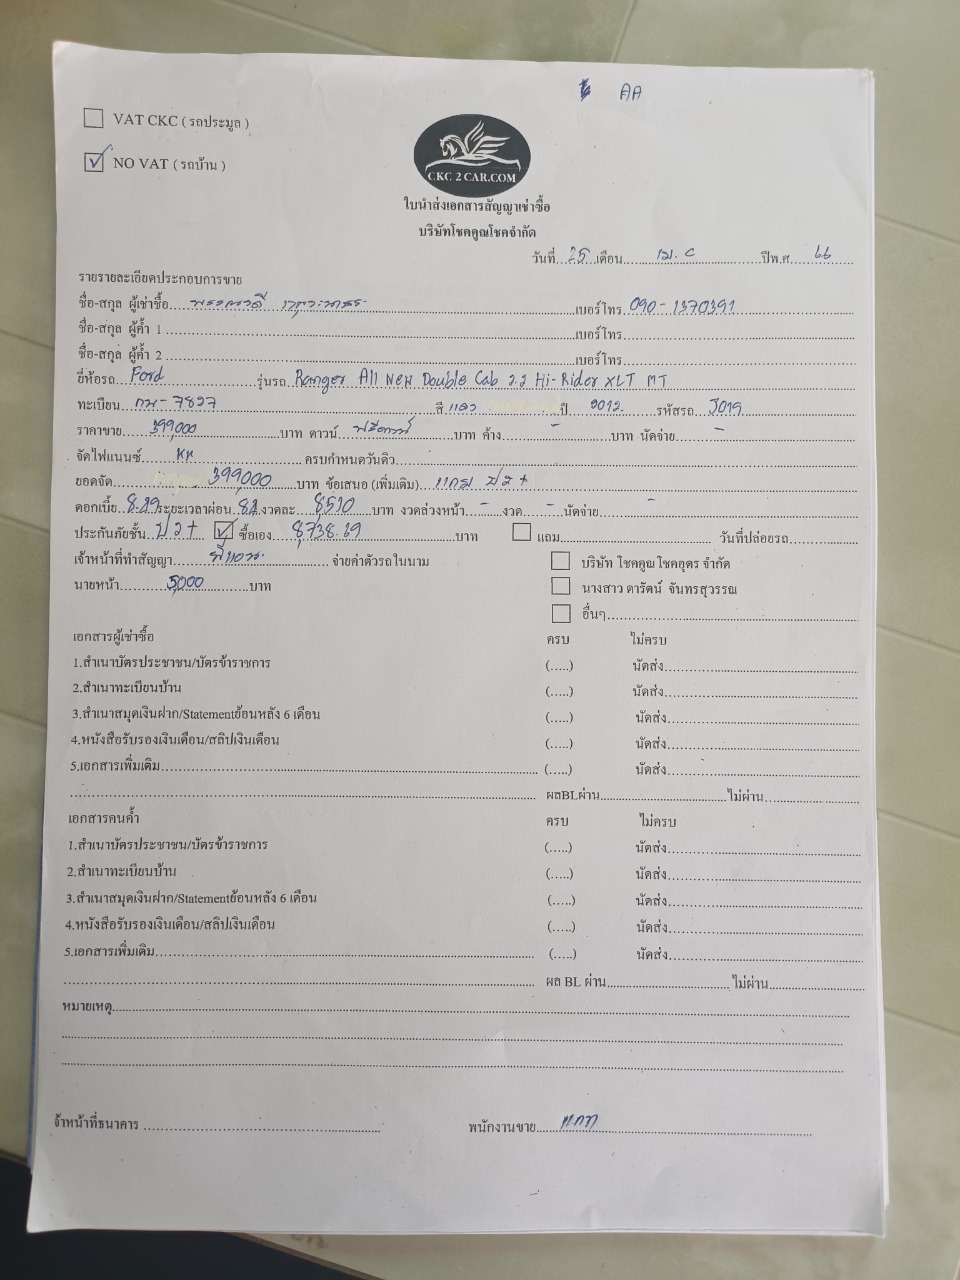 AA
VAT CKC ( รถประมูล )
✓ NO VAT ( รถบ้าน )
CKC 2 CAR.COM
ใบนำส่งเอกสารสัญญาเช่าซื้อ
บริษัทโชคคูณโชคจำกัด
วันที่ 25 เดือน เม.ย ปีพ.ศ 66
รายรายละเอียดประกอบการขาย
ชื่อ-สกุล ผู้เช่าซื้อ เบอร์โทร 090-1370391
ชื่อ-สกุล ผู้ค้ำ 1 เบอร์โทร
ชื่อ-สกุล ผู้ค้ำ 2 เบอร์โทร
ยี่ห้อรถ Ford รุ่นรถ Ranger All New Double Cab 2.2 Hi-Rider XLT MT
ทะเบียน กม-7827 สี แดง ปี 2012. รหัสรถ J019
ราคาขาย 399,000 บาท ดาวน์ ฟรีดาวน์ บาท ค้าง - บาท นัดจ่าย -
จัดไฟแนนซ์ KK ครบกำหนดวันดิว
ยอดจัด 399,000 บาท ข้อเสนอ (เพิ่มเติม) แถม ป2+
ดอกเบี้ย 8.29 ระยะเวลาผ่อน 84 งวดละ 8,510 บาท งวดล่วงหน้า - งวด - นัดจ่าย -
ประกันภัยชั้น ป2+ ✓ ซื้อเอง 8,738.69 บาท แถม วันที่ปล่อยรถ
เจ้าหน้าที่ทำสัญญา จ่ายค่าตัวรถในนาม บริษัท โชคคูณโชคอุดร จำกัด
นายหน้า 5,000 บาท นางสาว ดารัตน์ จันทรสุวรรณ
อื่นๆ
เอกสารผู้เช่าซื้อ ครบ ไม่ครบ
1.สำเนาบัตรประชาชน/บัตรข้าราชการ (.....) นัดส่ง
2.สำเนาทะเบียนบ้าน (.....) นัดส่ง
3.สำเนาสมุดเงินฝาก/Statementย้อนหลัง 6 เดือน (.....) นัดส่ง
4.หนังสือรับรองเงินเดือน/สลิปเงินเดือน (.....) นัดส่ง
5.เอกสารเพิ่มเติม (.....) นัดส่ง
ผลBLผ่าน ไม่ผ่าน
เอกสารคนค้ำ ครบ ไม่ครบ
1.สำเนาบัตรประชาชน/บัตรข้าราชการ (.....) นัดส่ง
2.สำเนาทะเบียนบ้าน (.....) นัดส่ง
3.สำเนาสมุดเงินฝาก/Statementย้อนหลัง 6 เดือน (.....) นัดส่ง
4.หนังสือรับรองเงินเดือน/สลิปเงินเดือน (.....) นัดส่ง
5.เอกสารเพิ่มเติม (.....) นัดส่ง
ผล BL ผ่าน ไม่ผ่าน
หมายเหตุ
จ้าหน้าที่ธนาคาร พนักงานขาย